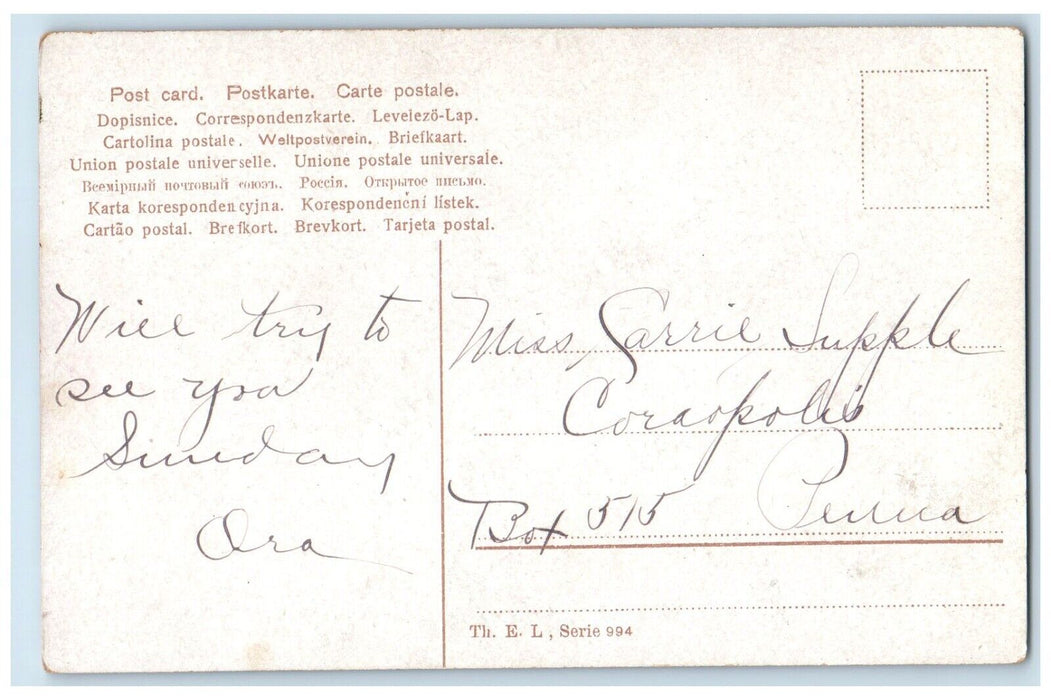 Post card. Postkarte. Carte postale.
Dopisnice. Correspondenzkarte. Levelezö-Lap.
Cartolina postale. Weltpostverein. Briefkaart.
Union postale universelle. Unione postale universale.
Всемірный почтовый союзъ. Россія. Открытое письмо.
Karta korespondencyjna. Korespondenční lístek.
Cartão postal. Brefkort. Brevkort. Tarjeta postal.
Will try to
see you
Sunday
Ora
Miss Carrie Supple
Coraopolis
Box 515 Penna
Th. E. L, Serie 994